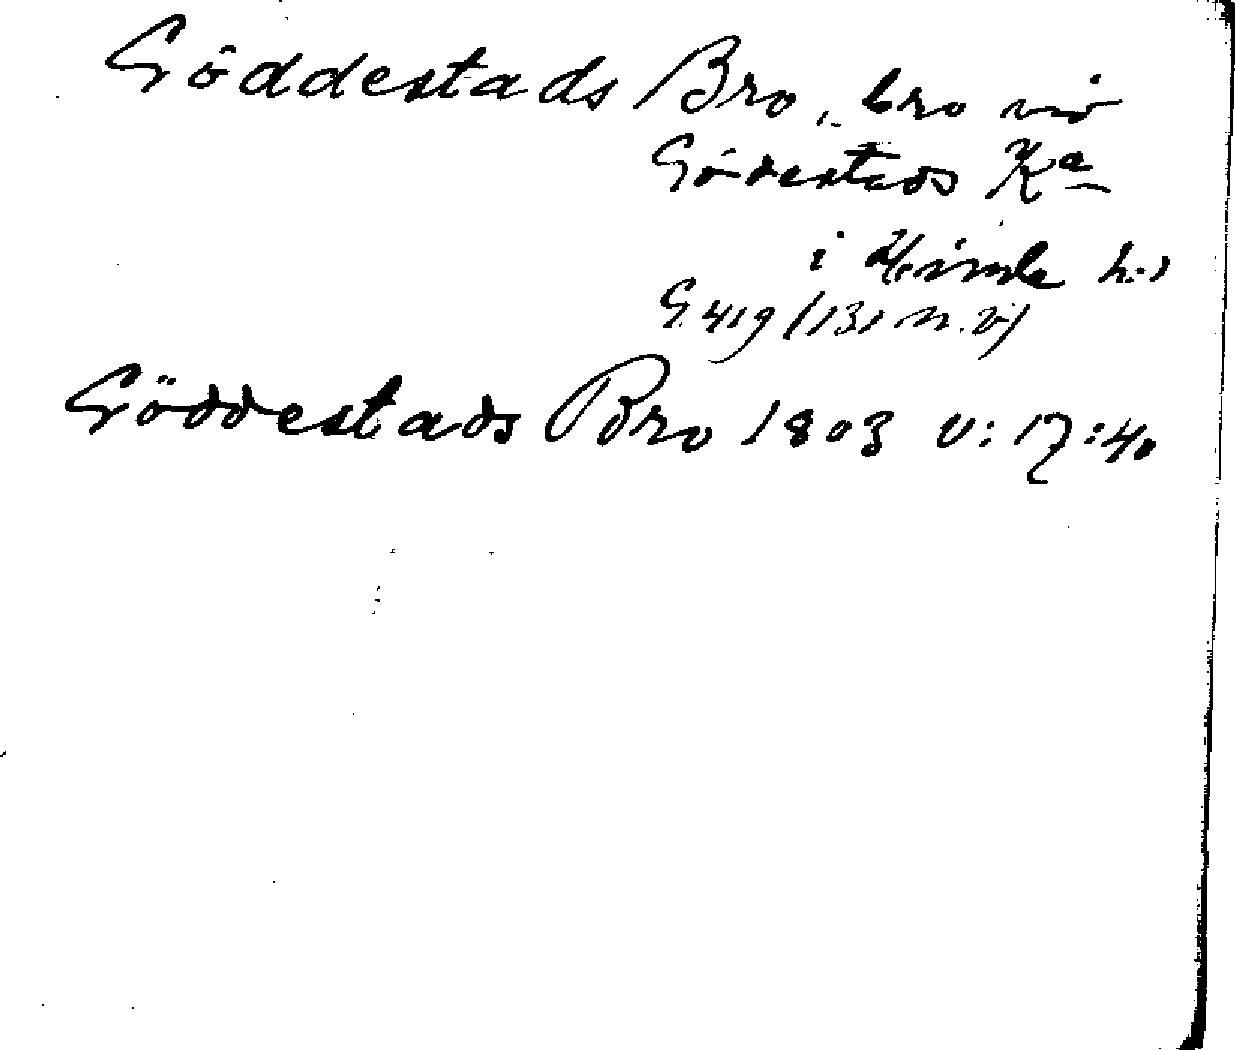 Göddestads Bro, bro vid
Gödestads Ka
i Himle h:d
G. 419 (131 n. v)
Göddestads Bro 1803 V: 17:40